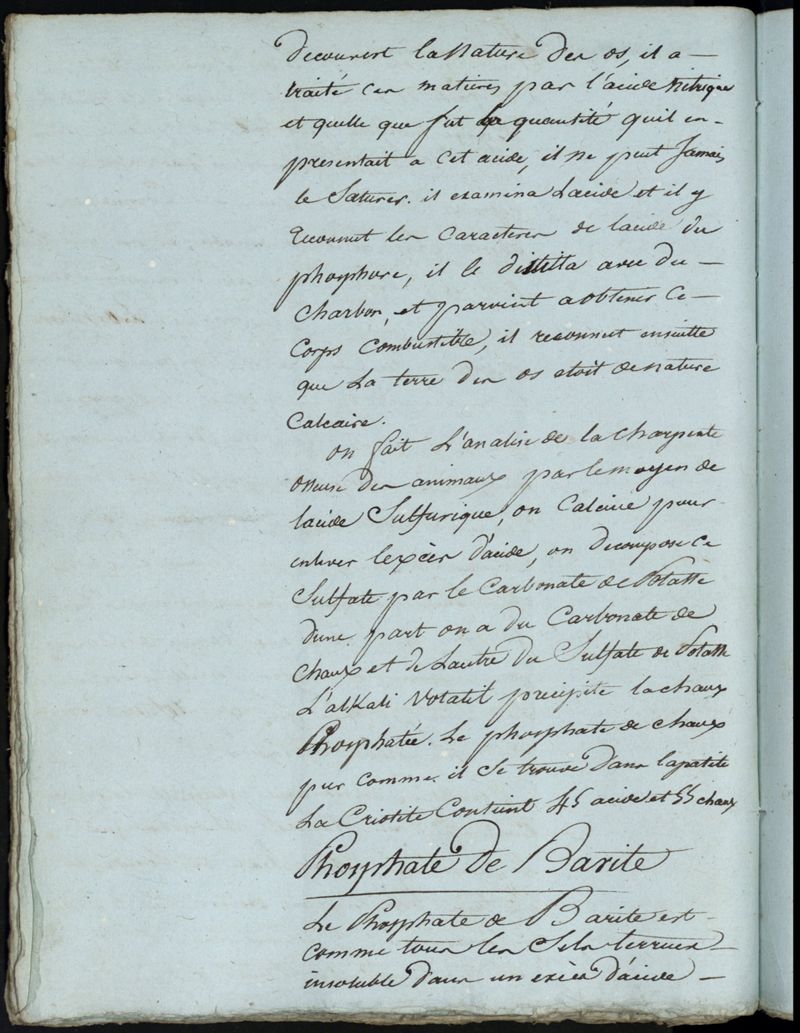 decouvert la Nature des os, il a —
traité ces matieres par l'acide Nitrique
et quelle que fut la quantité qu'il en -
presentait a cet acide, il ne peut Jamais
le Saturer. il examina Lacide et il y
reconnut les Caracteres de lacide du
phosphore, il le distilla avec du —
Charbon, et parvient a obtenir Ce —
Corps Combustible, il reconnut ensuitte
que La terre des os etoit de nature
Calcaire.
On fait L'analise de la Charpente
osseuse des animaux par le moyen de
lacide Sulfurique, on Calcine pour
enlever l'excès d'acide, on decompose ce
Sulfate par le Carbonate de Potasse
dune part on a du Carbonate de
Chaux et de Lautre du Sulfate de Potasse
L'alKali Volatil precipite la chaux
Phosphatée. Le phosphate de chaux
pur comme il se trouve dans lapatite
La Criolite Contient 45 acide et 55 chaux
Phosphate de Barite
Le Phosphate de Barite est
comme tous les Sels terreux —
insoluble dans un excès d'acide —